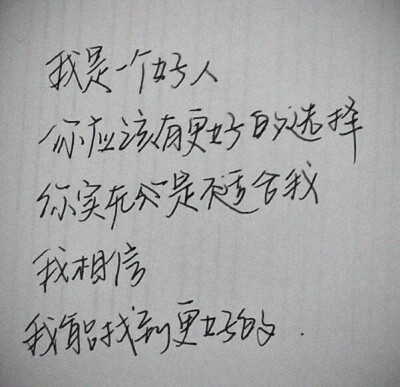 我是一个好人
你应该有更好的选择
你实在是不适合我
我相信
我能找到更好的.